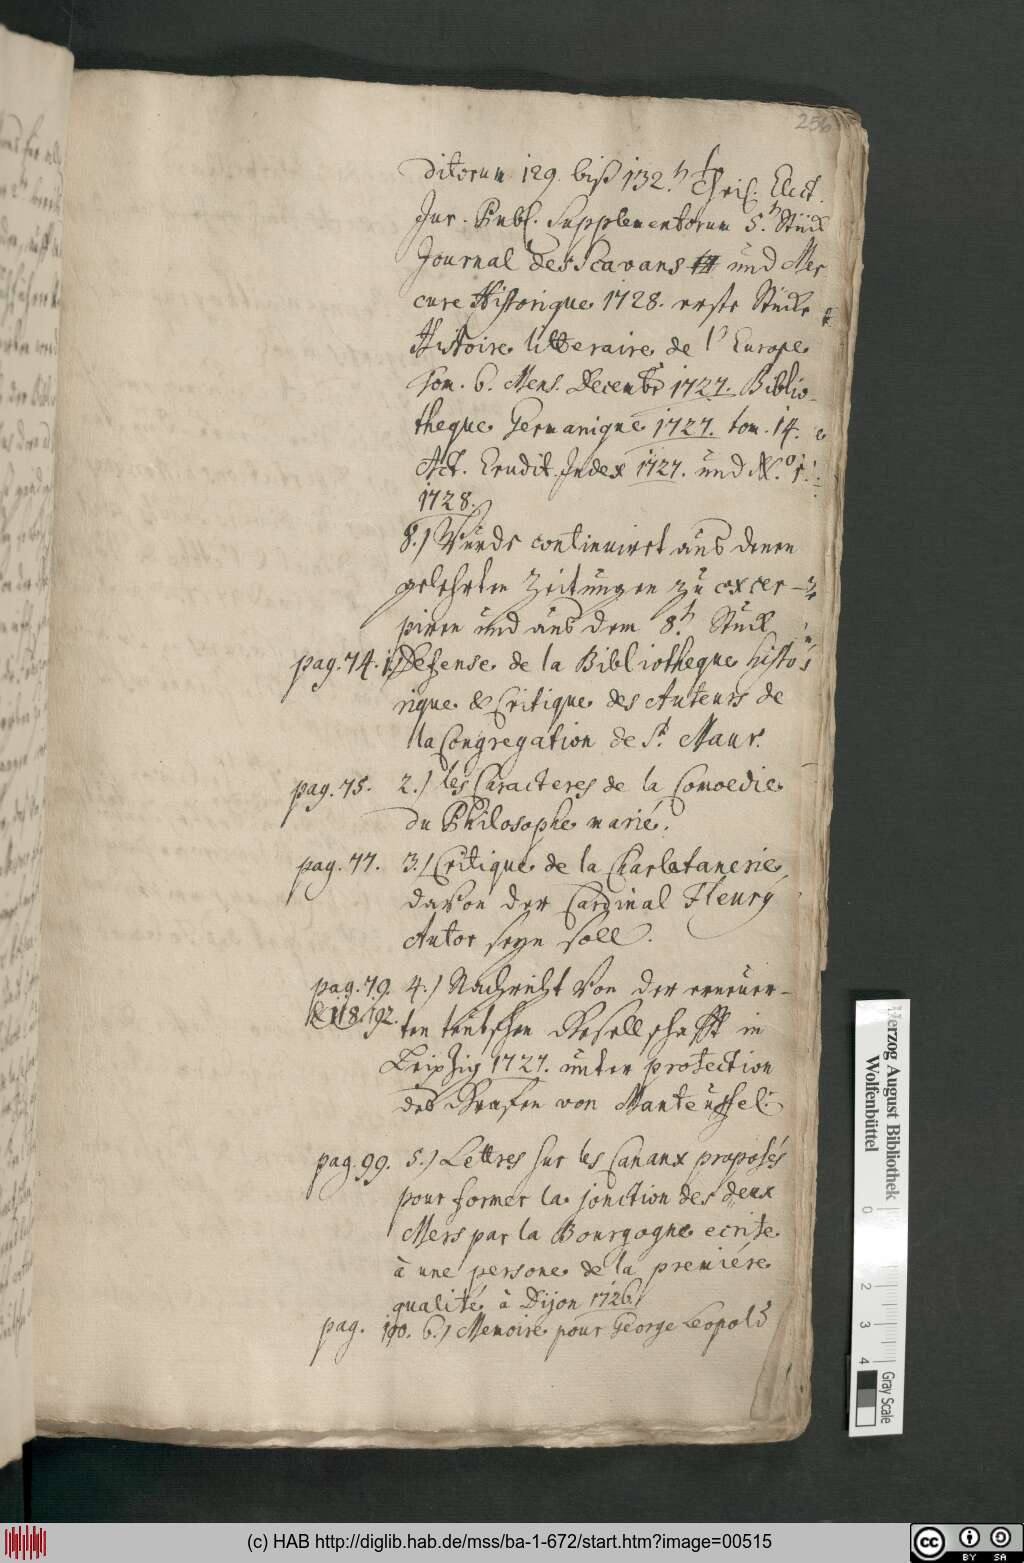 256
ditorum 129. biß 132.
Jur. Publ. Supplementorum 5. Stück
Journal des Scavans und Mer
cure Historique 1728. erste Stücke
Histoire litteraire de l'Europe
tom. 6. Mens. Decembr 1727. Biblio-
theque Germanique 1727. tom. 14.
Act. Erudit. Index 1727. und
1728.
8.) Wurde continuiret aus denen
gelehrten Zeitungen zu excer-
piren und aus dem 8. Stück
pag. 74. 1.) Defense de la Bibliotheque histo
rique & Critique des Auteurs de
la Congregation de St. Maur.
pag. 75. 2.) les Caracteres de la Comoedie
du Philosophe marié.
pag. 77. 3.) Critique de la Charletanerie
davon der Cardinal Fleury
Autor seyn soll.
pag. 79. 4.) Nachricht von der erneuer-
& 118. 192. ten teutschen Gesellschafft in
Leipzig 1727. unter protection
des Grafen von Manteuffel.
pag. 99. 5.) Lettres sur les Canaux proposés
pour former la jonction des deux
Mers par la Bourgogne ecrite
à une persone de la premiére
qualité à Dijon 1726.
pag. 190. 6.) Memoire pour George Leopold
Herzog August Bibliothek
Wolfenbüttel
0 2 3 4
Gray Scale
(c) HAB http://diglib.hab.de/mss/ba-1-672/start.htm?image=00515
cc BY SA